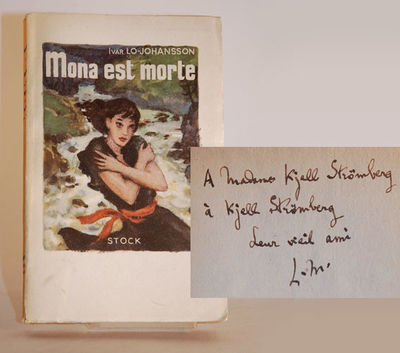 IVAR LO-JOHANSSON
Mona est morte
STOCK
A Madame Kjell Strömberg
à Kjell Strömberg
Leur vieil ami
L.M.